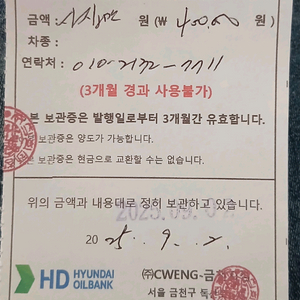 금액: 사십만 원 (₩ 400,000 원)
차종:
연락처: 010-7132-7711
(3개월 경과 사용불가)
본 보관증은 발행일로부터 3개월간 유효합니다.
본 보관증은 양도가 가능합니다.
본 보관증은 현금으로 교환할 수는 없습니다.
위의 금액과 내용대로 정히 보관하고 있습니다.
2025.09.02
2025. 9. 2.
HD HYUNDAI OILBANK
㈜CWENG-금
서울 금천구